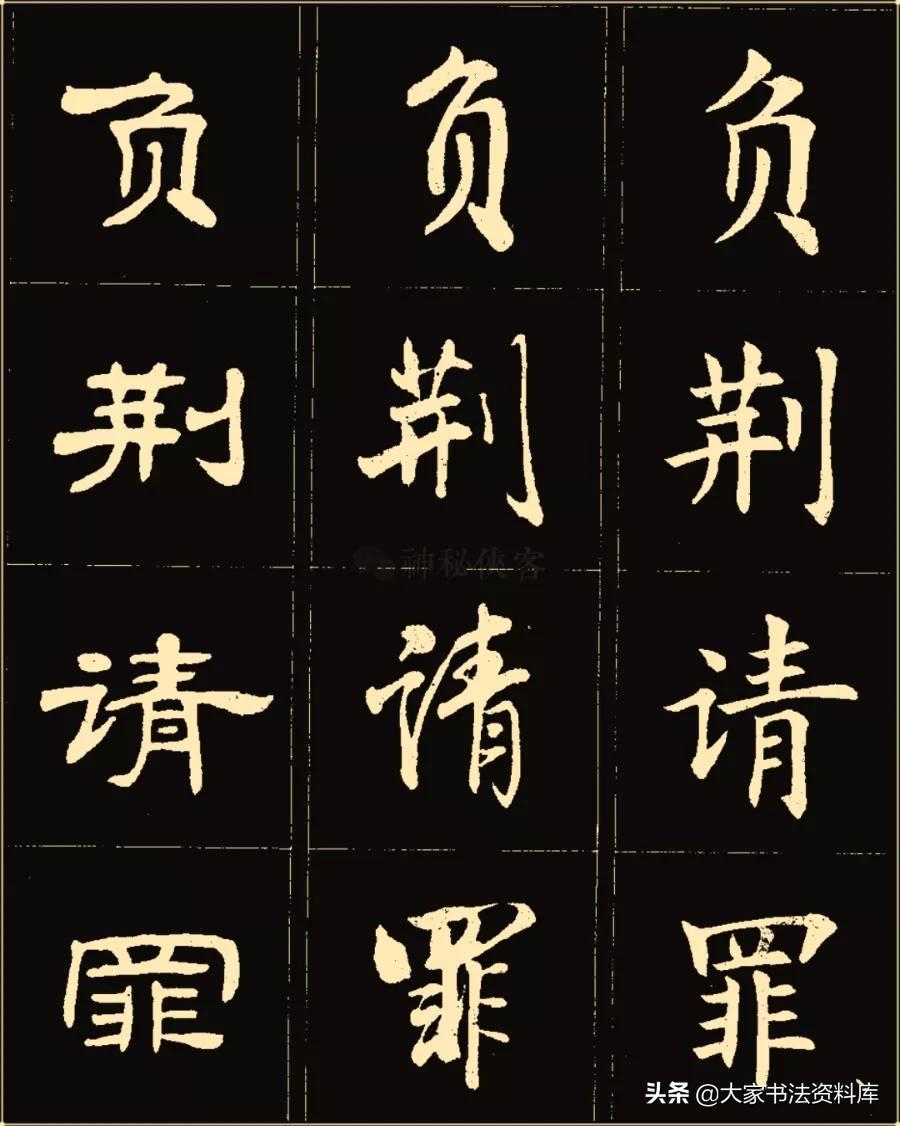 负 负 负
荆 荆 荆
神秘侠客
请 请 请
罪 罪 罪
头条 @大家书法资料库